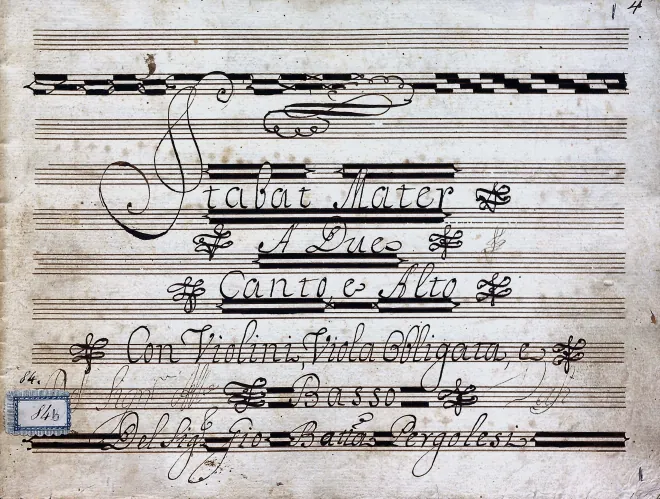 4
Stabat Mater
A Due
Canto, e Alto
Con Violini, Viola Obligata, e
84.
Basso
84b
Del Sigre Gio Batta Pergolesi